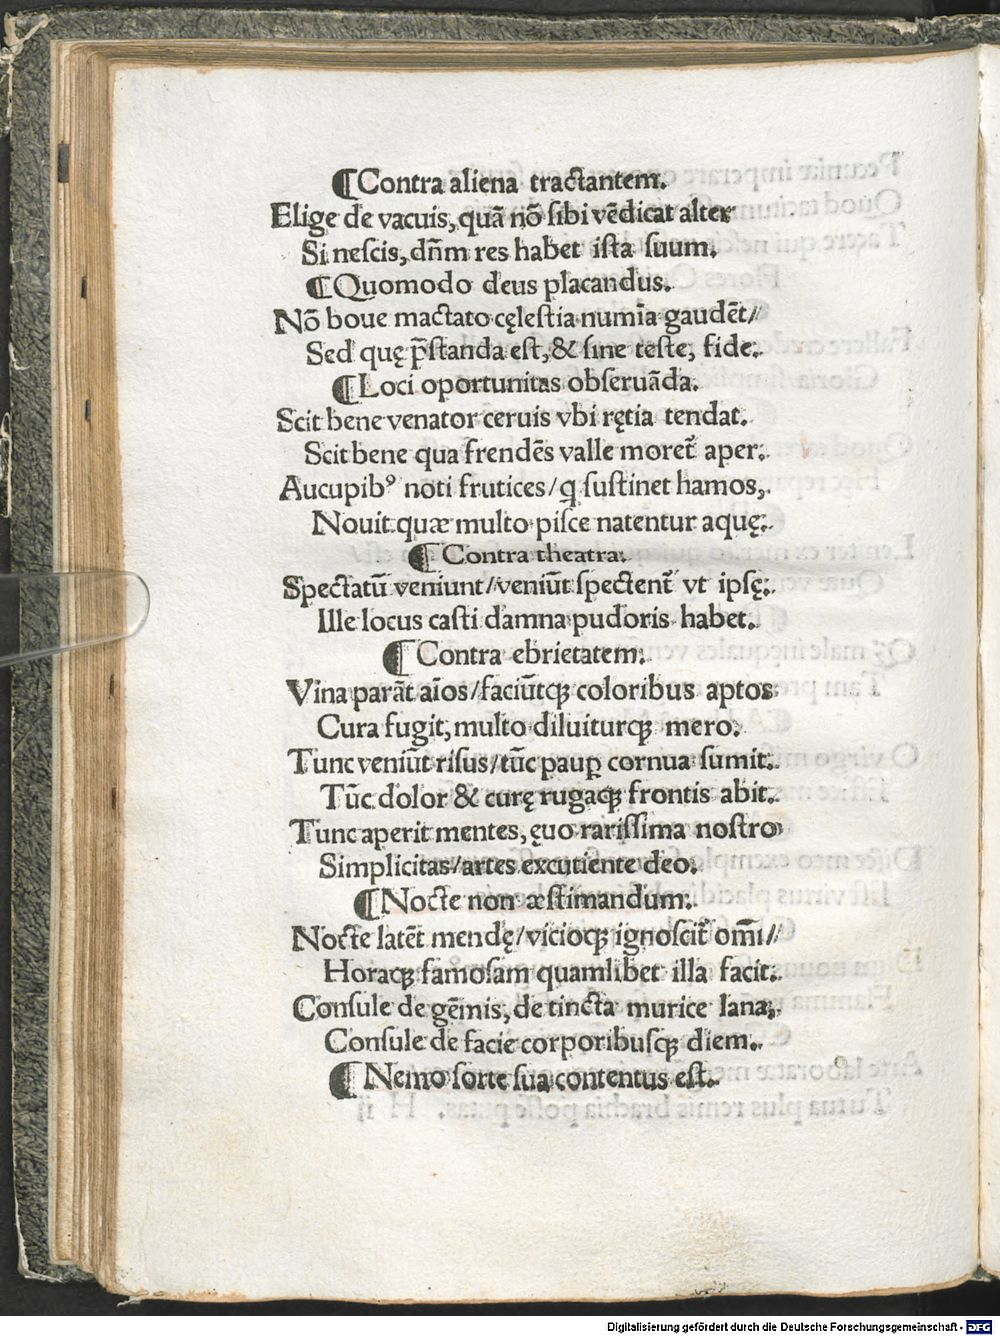 ¶Contra aliena tractantem.
Elige de vacuis, quā nō sibi vēdicat alter
Si nescis, dn̄m res habet ista suum.
¶Quomodo deus placandus.
Nō boue mactato cęlestia numīa gaudēt/
Sed quę p̄standa est, & sine teste, fide.
¶Loci oportunitas obseruāda.
Scit bene venator ceruis vbi rętia tendat.
Scit bene qua frendēs valle moret᷑ aper.
Aucupibꝰ noti frutices/ q sustinet hamos,
Nouit quæ multo pisce natentur aquę.
¶Contra theatra.
Spectatū veniunt/ veniūt spectent᷑ vt ipsę.
Ille locus casti damna pudoris habet.
¶Contra ebrietatem.
Vina parāt aīos/ faciūtqꝫ coloribus aptos
Cura fugit, multo diluiturqꝫ mero.
Tunc veniūt risus/ tūc paup̱ cornua sumit.
Tūc dolor & curę rugaqꝫ frontis abit.
Tunc aperit mentes, ęuo rarissima nostro
Simplicitas/ artes excutiente deo.
¶Nocte non æstimandum.
Nocte latēt mendę/ vicioqꝫ ignoscit᷑ om̄i/
Horaqꝫ famosam quamlibet illa facit.
Consule de gēmis, de tincta murice lana,
Consule de facie corporibusqꝫ diem.
¶Nemo sorte sua contentus est.
Digitalisierung gefördert durch die Deutsche Forschungsgemeinschaft - DFG